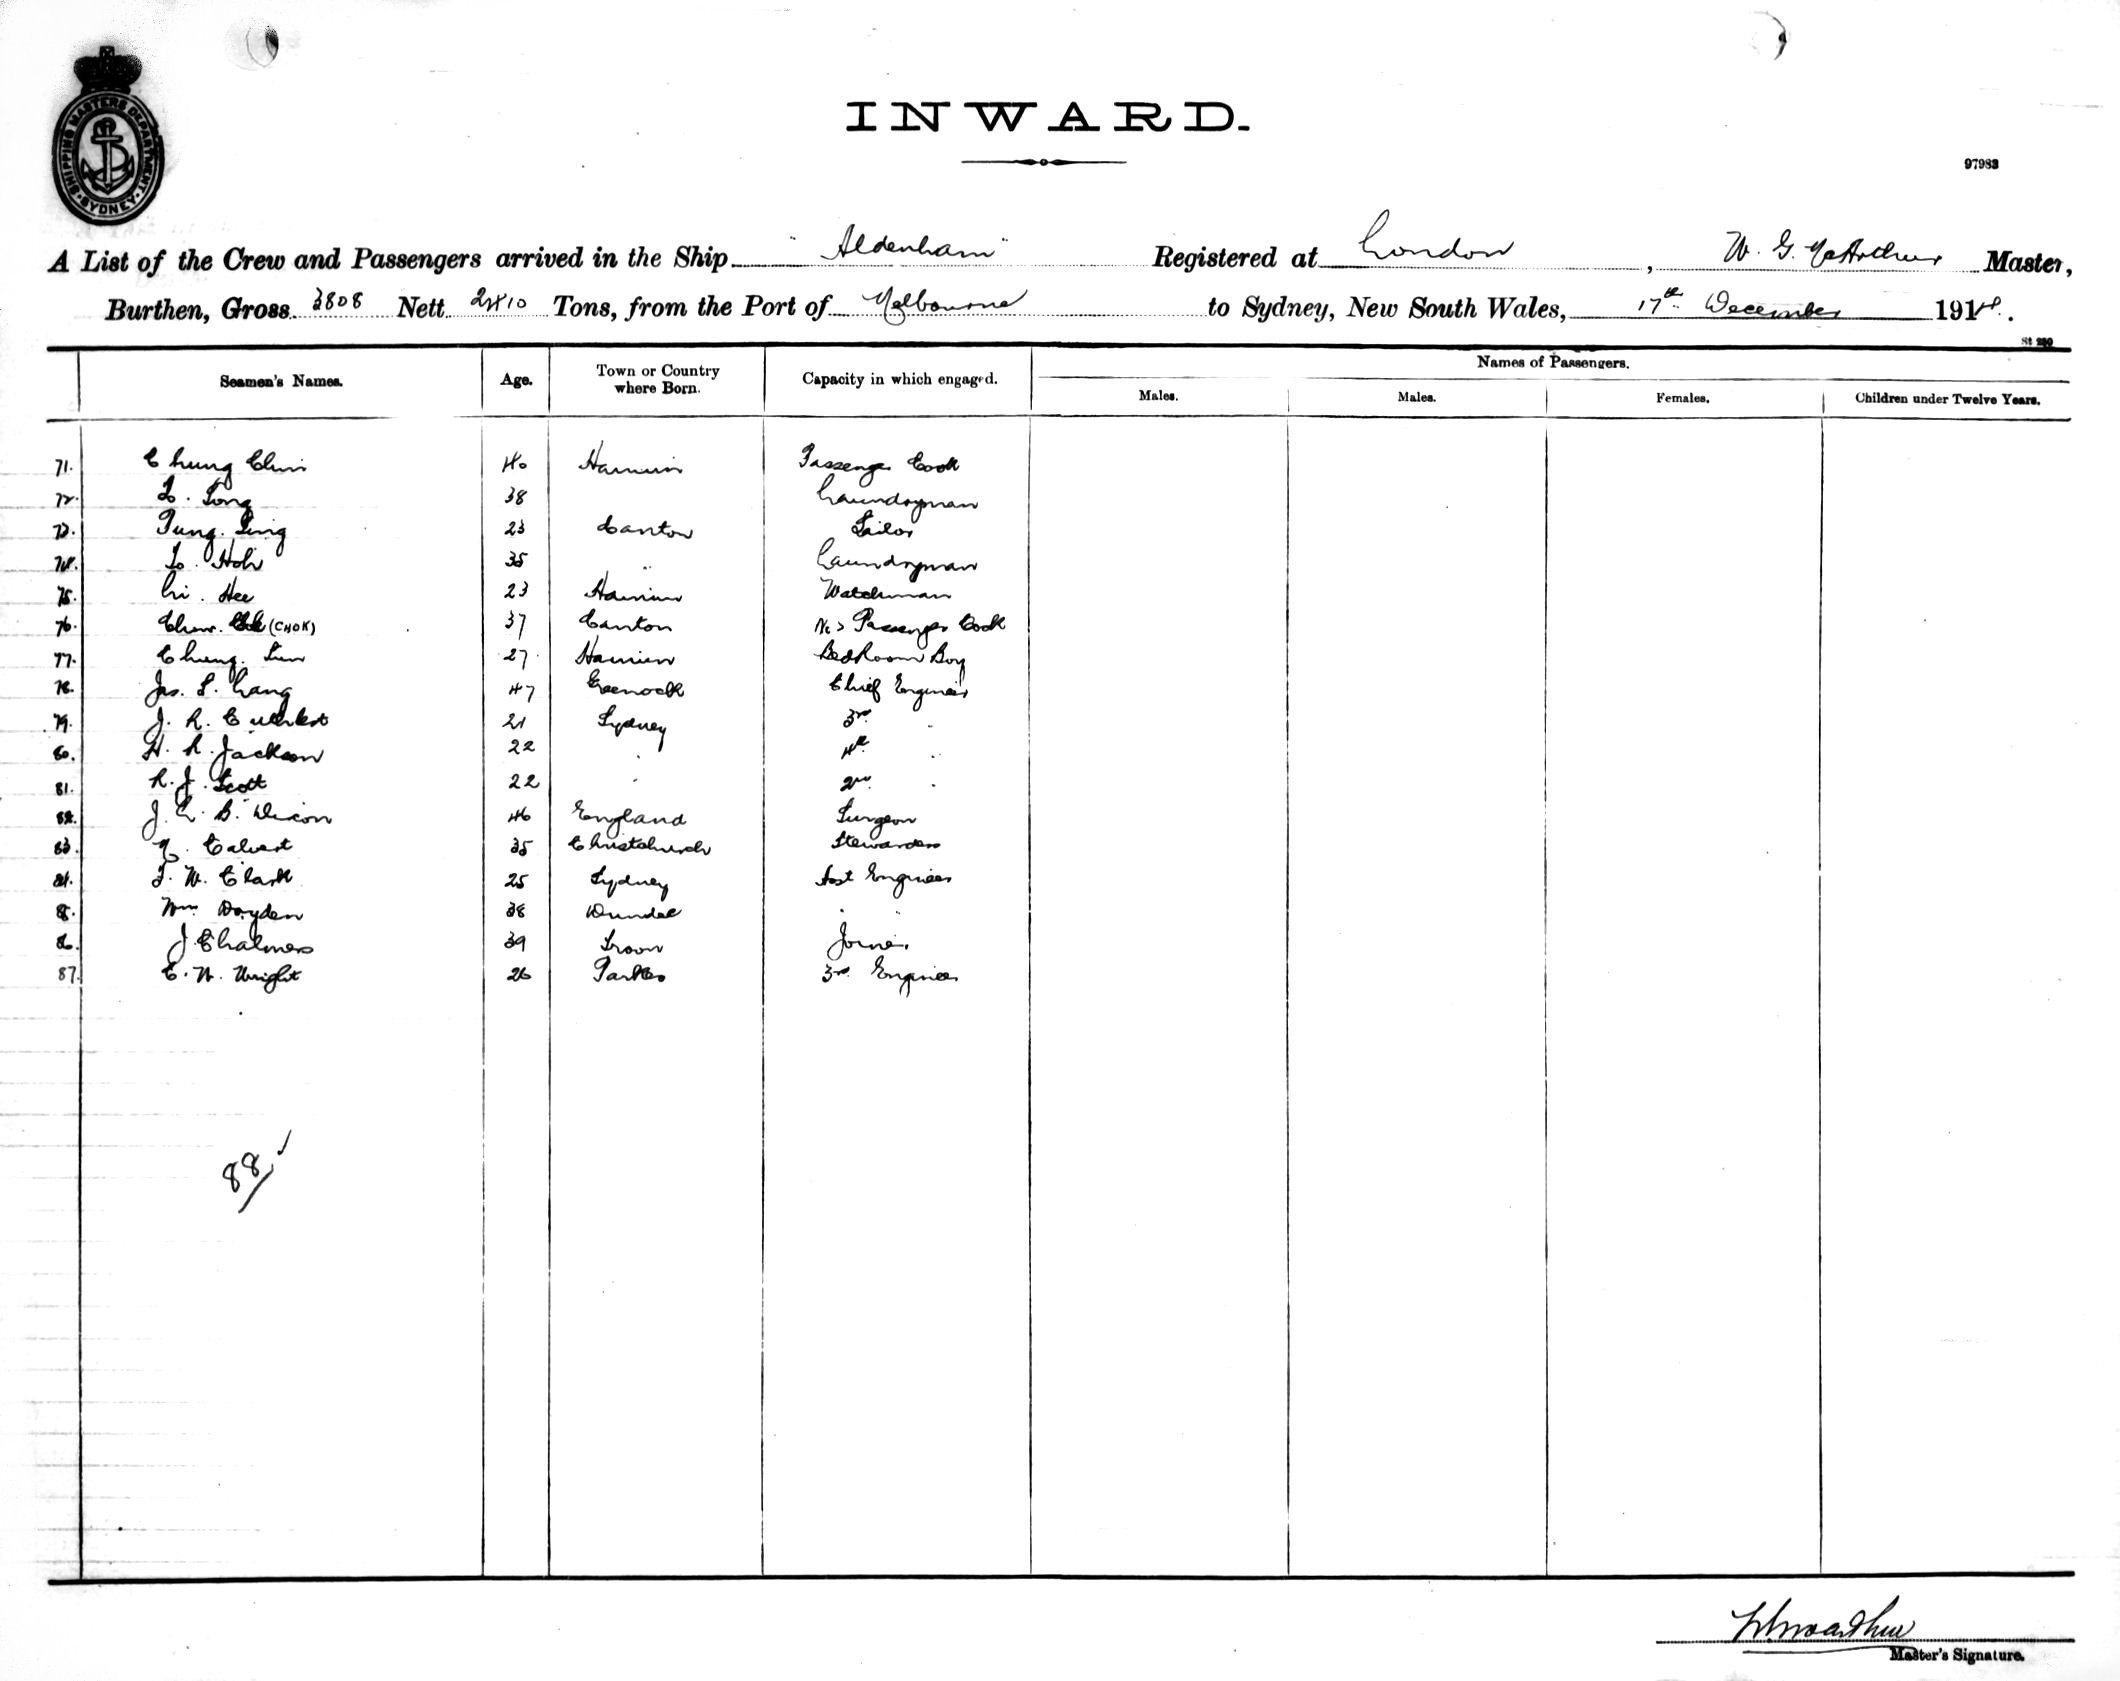 SHIPPING MASTERS DEPARTMENT
SYDNEY
INWARD.
97983
A List of the Crew and Passengers arrived in the Ship "Aldenham" Registered at London, W. G. McArthur Master,
Burthen, Gross 3808 Nett 2410 Tons, from the Port of Melbourne to Sydney, New South Wales, 17th December 1914.
St 280
Seamen's Names. Age. Town or Country where Born. Capacity in which engaged. Names of Passengers.
Males. Males. Females. Children under Twelve Years.
71. Chung Chin 40 Hainin Passenger Cook
72. Lo. Song 38 Laundryman
73. Tung. Sing 23 Canton Tailor
74. Lo. Hoi 35 " Laundryman
75. Li. Hee 23 Hainin Watchman
76. Chow. (CHOK) 37 Canton No 2 Passenger Cook
77. Chung. Sun 27 Hainin BedRoom Boy
78. Jas. S. Lang 47 Greenock Chief Engineer
79. J. R. Cuthbert 21 Sydney 3rd "
80. H. R. Jackson 22 " 4th "
81. R. J. Scott 22 " 2nd "
82. J. E. B. Dixon 46 England Surgeon
83. M. Calvert 35 Christchurch Stewardess
84. F. W. Clark 25 Sydney Asst Engineer
85. Wm Dryden 38 Dundee " "
86. J Chalmers 39 Troon Joiner
87. C. W. Wright 26 Parkes 3rd Engineer
88
Master's Signature.